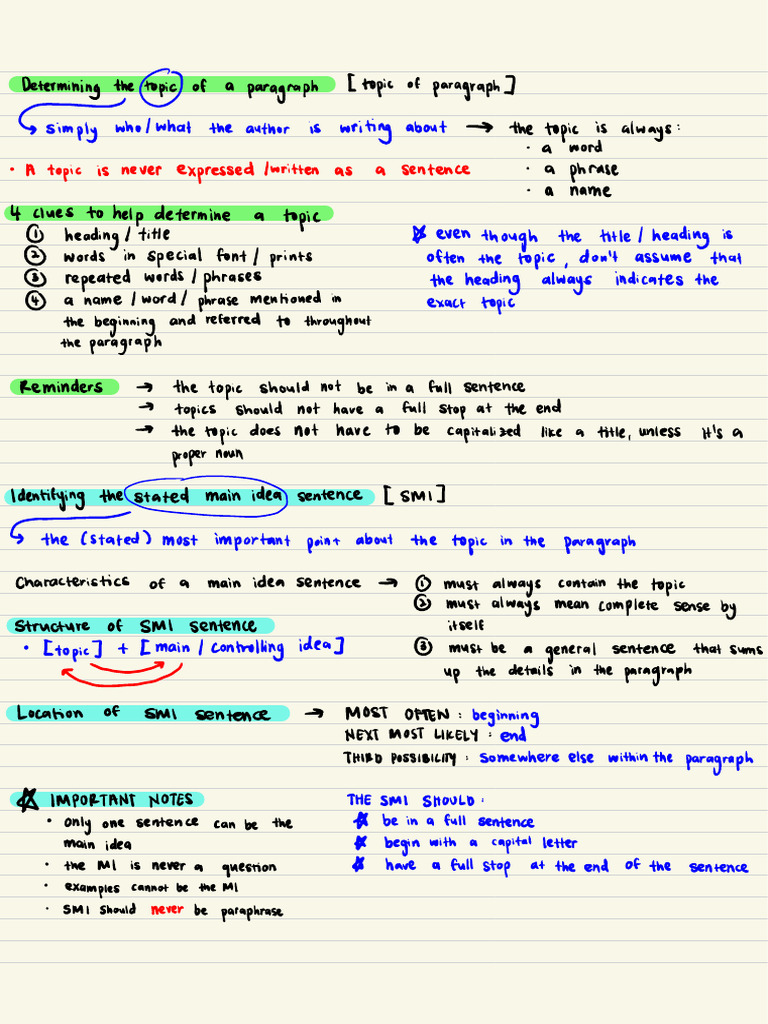 Determining the topic of a paragraph [topic of paragraph]
↳ simply who/what the author is writing about → the topic is always:
· a word
· A topic is never expressed/written as a sentence
· a phrase
· a name
4 clues to help determine a topic
① heading/title
② words in special font/prints
③ repeated words/phrases
④ a name/word/phrase mentioned in
the beginning and referred to throughout
the paragraph
☆ even though the title/heading is
often the topic, don't assume that
the heading always indicates the
exact topic
Reminders → the topic should not be in a full sentence
→ topics should not have a full stop at the end
→ the topic does not have to be capitalized like a title, unless it's a
proper noun
Identifying the stated main idea sentence [SMI]
↳ the (stated) most important point about the topic in the paragraph
Characteristics of a main idea sentence → ① must always contain the topic
② must always mean complete sense by
itself
③ must be a general sentence that sums
up the details in the paragraph
Structure of SMI sentence
· [topic] + [main/controlling idea]
Location of SMI sentence → MOST OFTEN: beginning
NEXT MOST LIKELY: end
THIRD POSSIBILITY: somewhere else within the paragraph
☆ IMPORTANT NOTES
· only one sentence can be the
main idea
· the MI is never a question
· examples cannot be the MI
· SMI should never be paraphrase
THE SMI SHOULD:
☆ be in a full sentence
☆ begin with a capital letter
☆ have a full stop at the end of the sentence